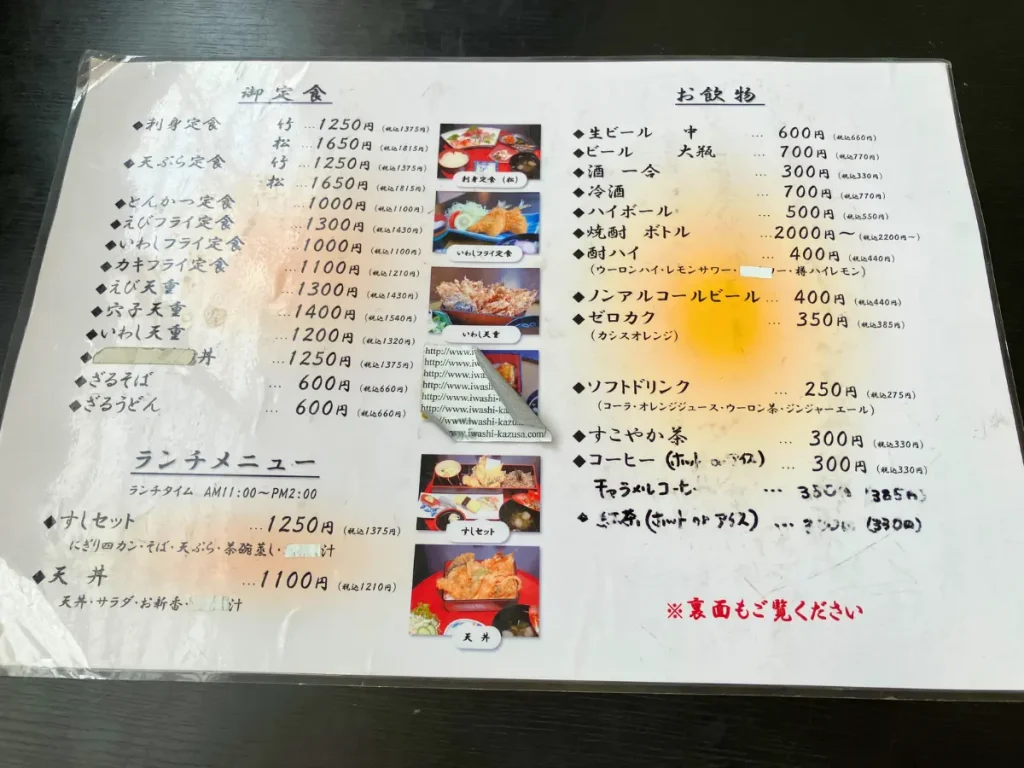 御定食
◆刺身定食 竹 …1250円 (税込1375円)
松 …1650円 (税込1815円)
◆天ぷら定食 竹 …1250円 (税込1375円)
松 …1650円 (税込1815円)
◆とんかつ定食 …1000円 (税込1100円)
◆えびフライ定食 …1300円 (税込1430円)
◆いわしフライ定食 …1000円 (税込1100円)
◆カキフライ定食 …1100円 (税込1210円)
◆えび天重 …1300円 (税込1430円)
◆穴子天重 …1400円 (税込1540円)
◆いわし天重 …1200円 (税込1320円)
◆丼 …1250円 (税込1375円)
◆ざるそば … 600円 (税込660円)
◆ざるうどん … 600円 (税込660円)
ランチメニュー
ランチタイム AM11:00～PM2:00
◆すしセット …1250円 (税込1375円)
にぎり四カン・そば・天ぷら・茶碗蒸し・汁
◆天丼 …1100円 (税込1210円)
天丼・サラダ・お新香・汁
刺身定食(松)
いわしフライ定食
いわし天重
http://www.iwa
http://www.iwashi
http://www.iwashi-
http://www.iwashi-k
www.iwashi-kazu
www.iwashi-kazusa
www.iwashi-kazusa.com/
すしセット
天丼
お飲物
◆生ビール 中 … 600円 (税込660円)
◆ビール 大瓶 … 700円 (税込770円)
◆酒 一合 … 300円 (税込330円)
◆冷酒 … 700円 (税込770円)
◆ハイボール … 500円 (税込550円)
◆焼酎 ボトル …2000円～ (税込2200円～)
◆酎ハイ … 400円 (税込440円)
(ウーロンハイ・レモンサワー・ー・樽ハイレモン)
◆ノンアルコールビール… 400円 (税込440円)
◆ゼロカク … 350円 (税込385円)
(カシスオレンジ)
◆ソフトドリンク … 250円 (税込275円)
(コーラ・オレンジジュース・ウーロン茶・ジンジャーエール)
◆すこやか茶 … 300円 (税込330円)
◆コーヒー (ホット or アイス) … 300円 (税込330円)
キャラメルコーヒー … 350円 (385円)
◆紅茶 (ホット or アイス) … 300円 (330円)
※裏面もご覧ください